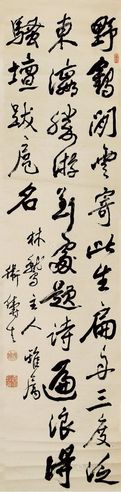 野鶴閒雲寄此生扁舟三度泛
東瀛勝游到處題詩遍浪得
騷壇跋扈名
林鶯主人雅屬